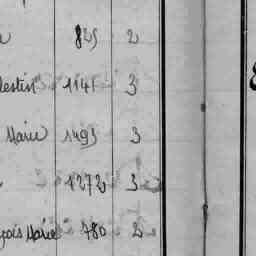 825 2
lestin 1141 3
Marie 1493 3
1272 3
çois Marie 780 2